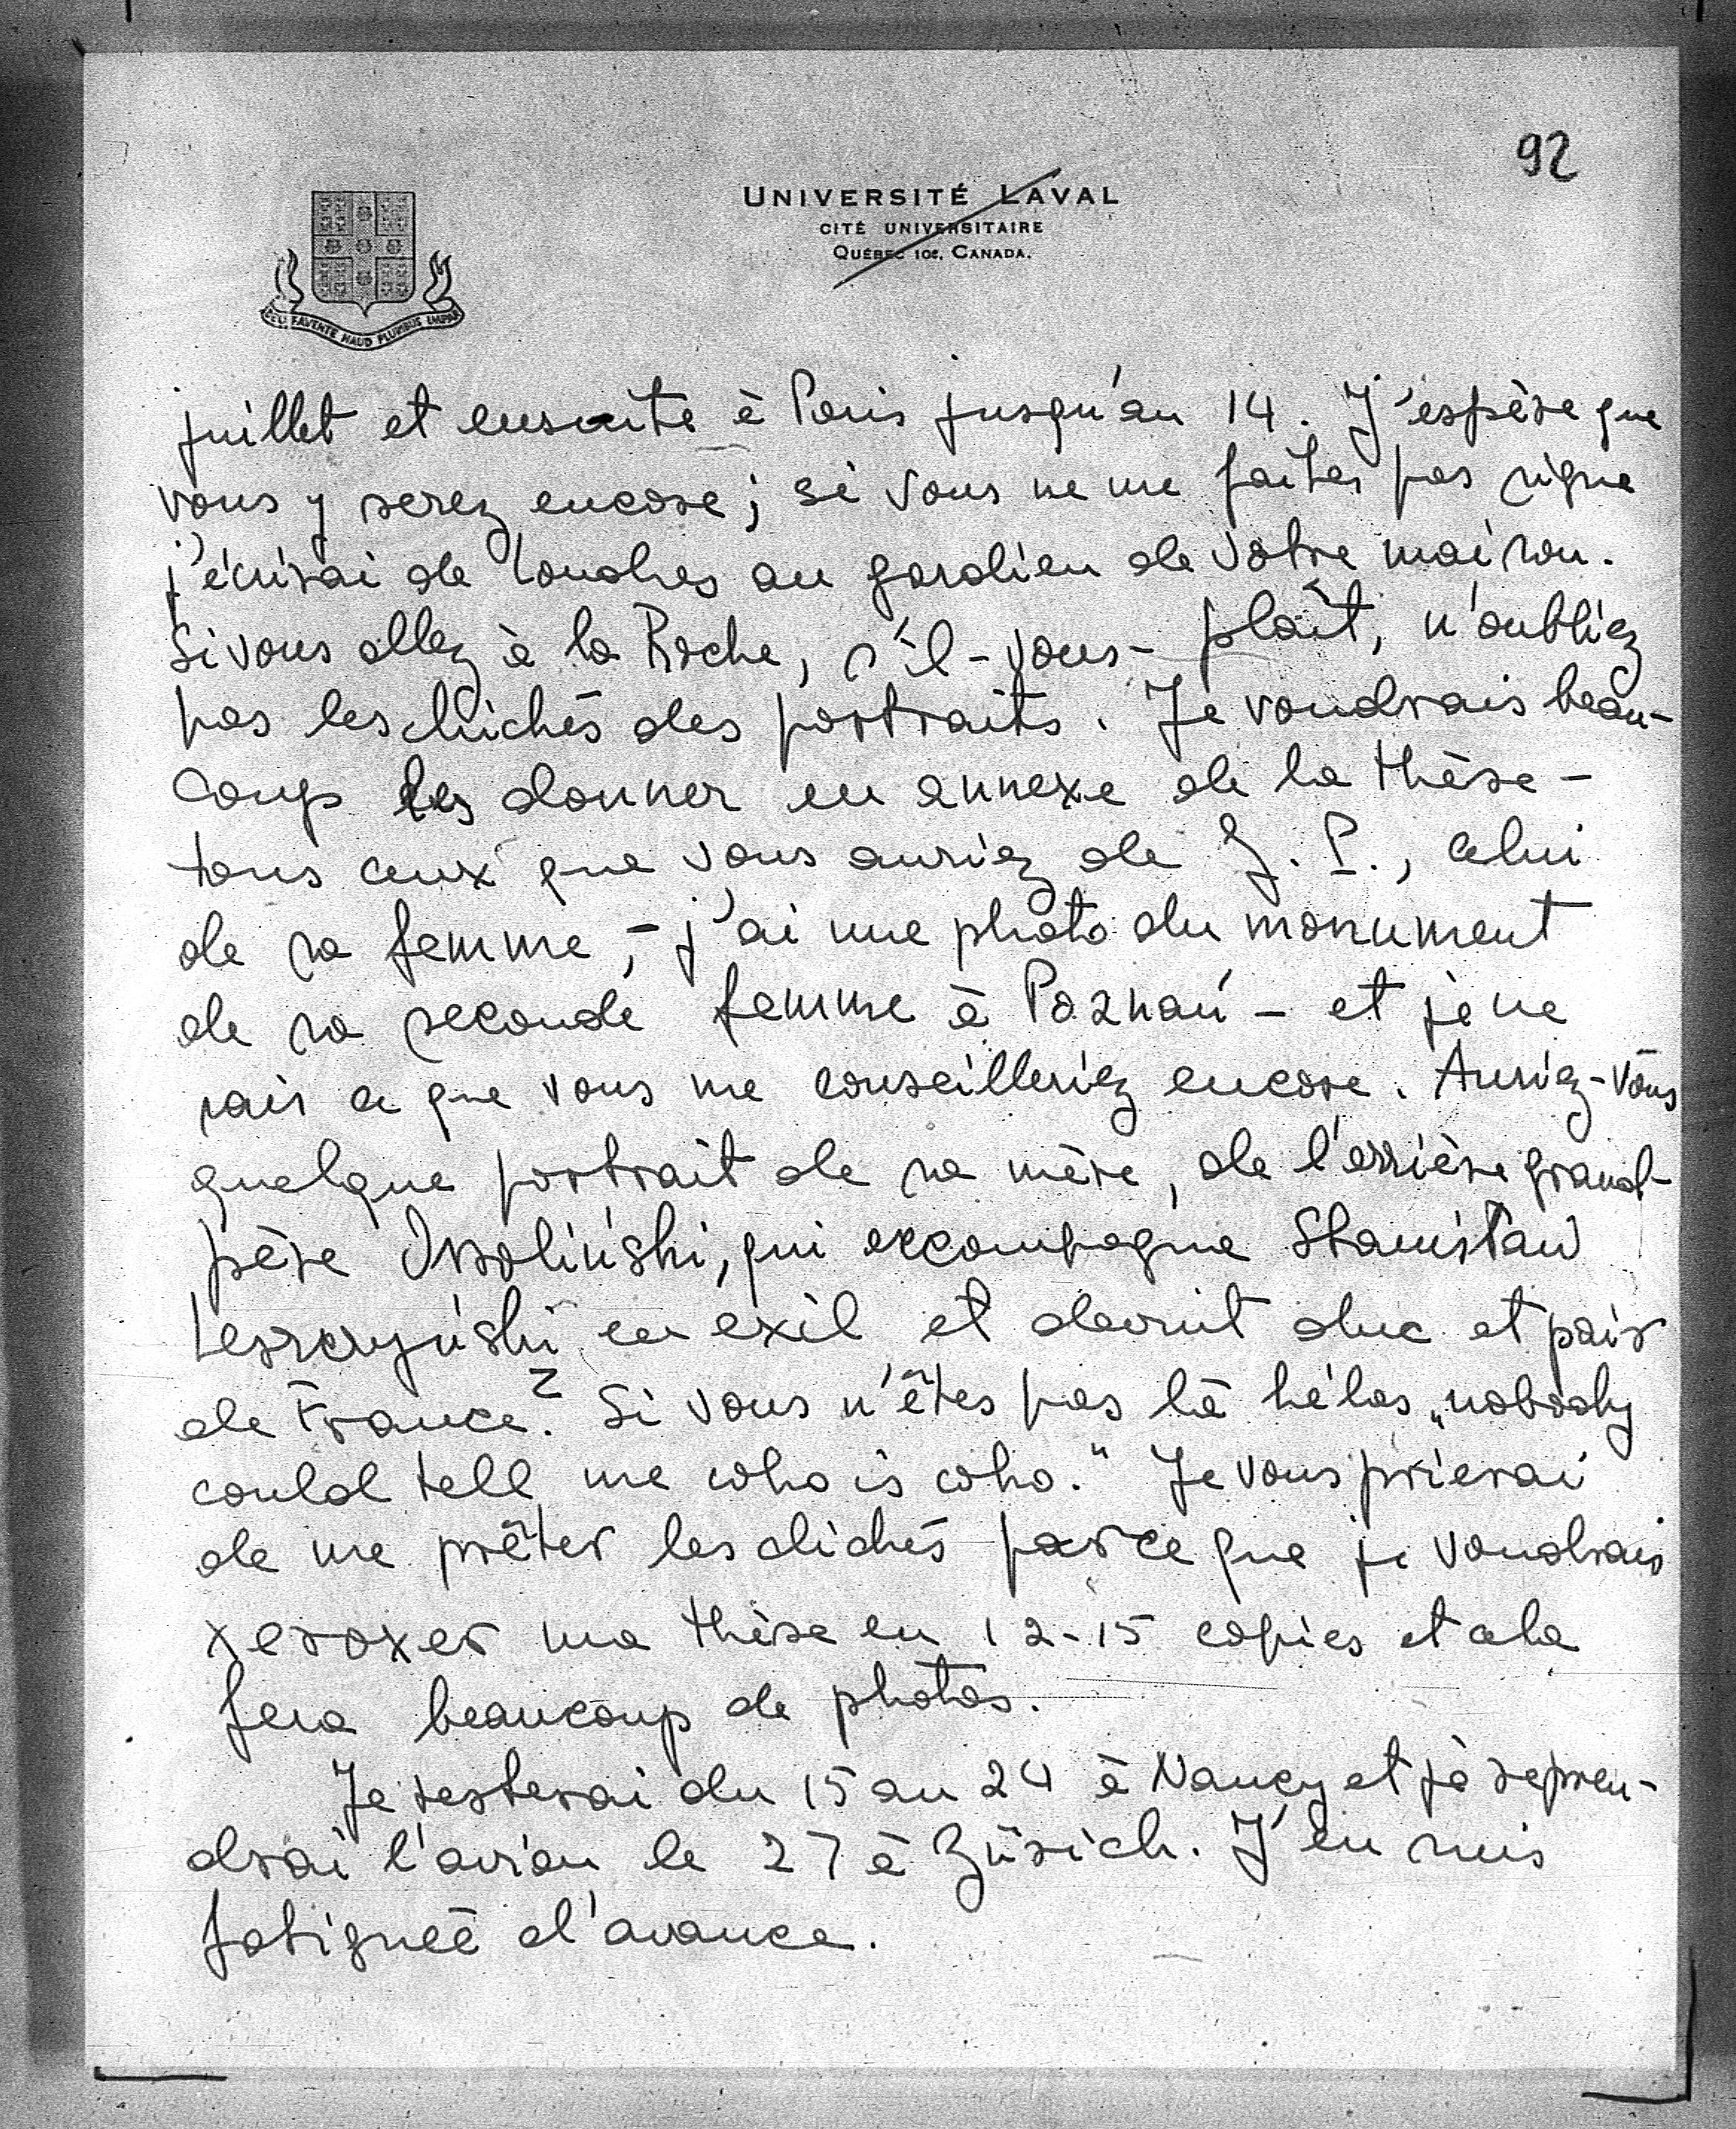 92
UNIVERSITÉ LAVAL
CITÉ UNIVERSITAIRE
QUÉBEC 10e, CANADA.
DEO FAVENTE HAUD PLURIBUS IMPAR
juillet et ensuite à Paris jusqu'au 14. J'espère que
vous y serez encore; si vous ne me faites pas signe
j'écrirai de Londres au gardien de votre maison.
Si vous allez à la Roche, s'il-vous-plaît, n'oubliez
pas les clichés des portraits. Je voudrais beau-
coup les donner en annexe de la thèse -
tous ceux que vous auriez de J. P., celui
de sa femme, - j'ai une photo du monument
de sa seconde femme à Poznań - et je ne
sais ce que vous me conseilleriez encore. Auriez-vous
quelque portrait de sa mère, de l'arrière grand-
père Ossoliński, qui accompagna Stanisław
Leszczyński en exil et devint duc et pair
de France? Si vous n'êtes pas là hélas „nobody
could tell me who is who." Je vous prierai
de me prêter les clichés parce que je voudrais
xeroxer ma thèse en 12-15 copies et cela
fera beaucoup de photos.
Je resterai du 15 au 24 à Nancy et je repren-
drai l'avion le 27 à Zürich. J'en suis
fatiguée d'avance.